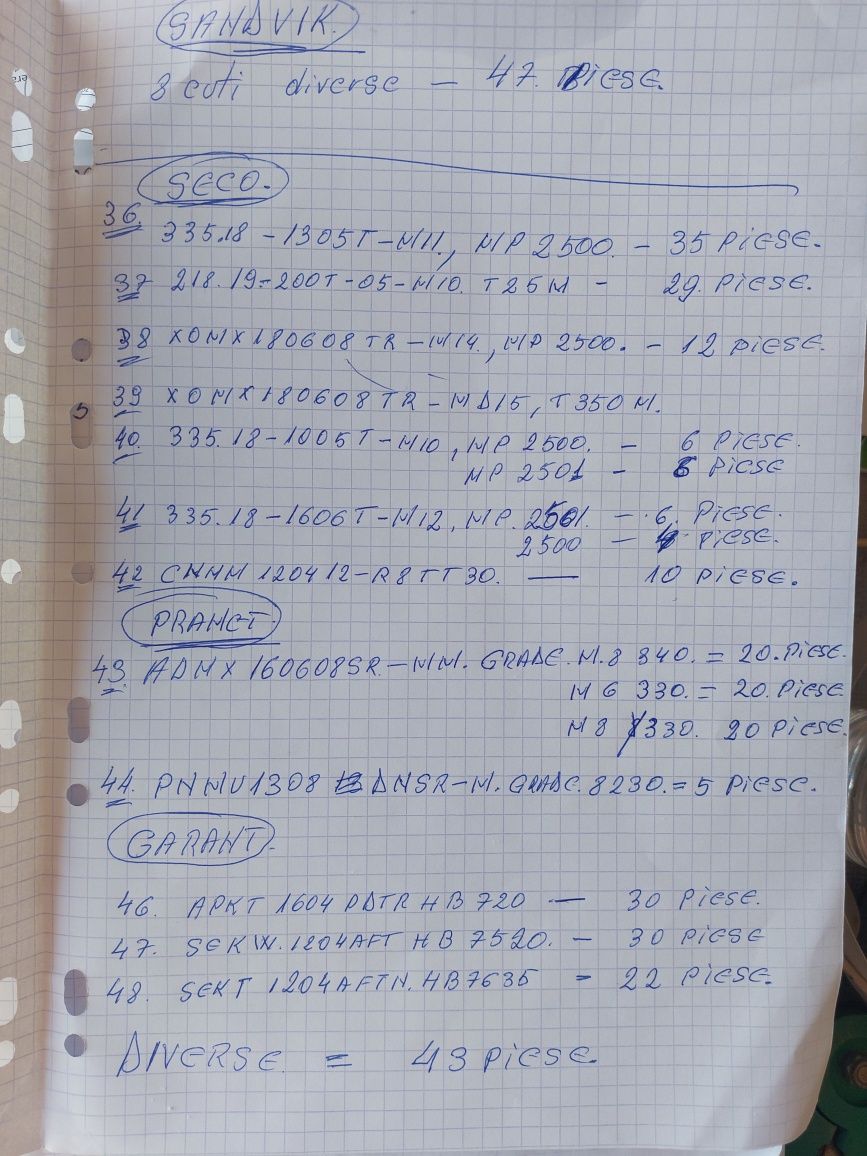 SANDVIK.
8 cuti diverse – 47. Piese.
SECO.
36. 335.18-1305T-M11., MP 2500. - 35 Piese.
37 218.19-200T-05-M10. T25M - 29. Piese.
38 XOMX180608TR-M14., MP 2500. - 12 piese.
39 XOMX180608TR-MD15, T350M.
40. 335.18-1005T-M10, MP 2500. - 6 Piese.
MP 2501 - 6 Piese
41 335.18-1606T-M12, MP. 2501. - 6. Piese.
2500 - 4. Piese.
42 CNMM 120412-R8TT30. — 10 Piese.
PRAMET.
43. ADMX 160608SR.-MM. GRADE. M.8 340. = 20. Piese.
M 6 330. = 20. Piese
M 8 330. 20 Piese.
44. PNMU1308 DNSR-M. GRADE. 8230. = 5 Piese.
GARANT.
46. APKT 1604 PDTR HB 720 — 30 Piese.
47. SEKW. 1204AFT HB 7520. - 30 Piese
48. SEKT 1204AFTN. HB7635 = 22 Piese.
DIVERSE. = 43 Piese.